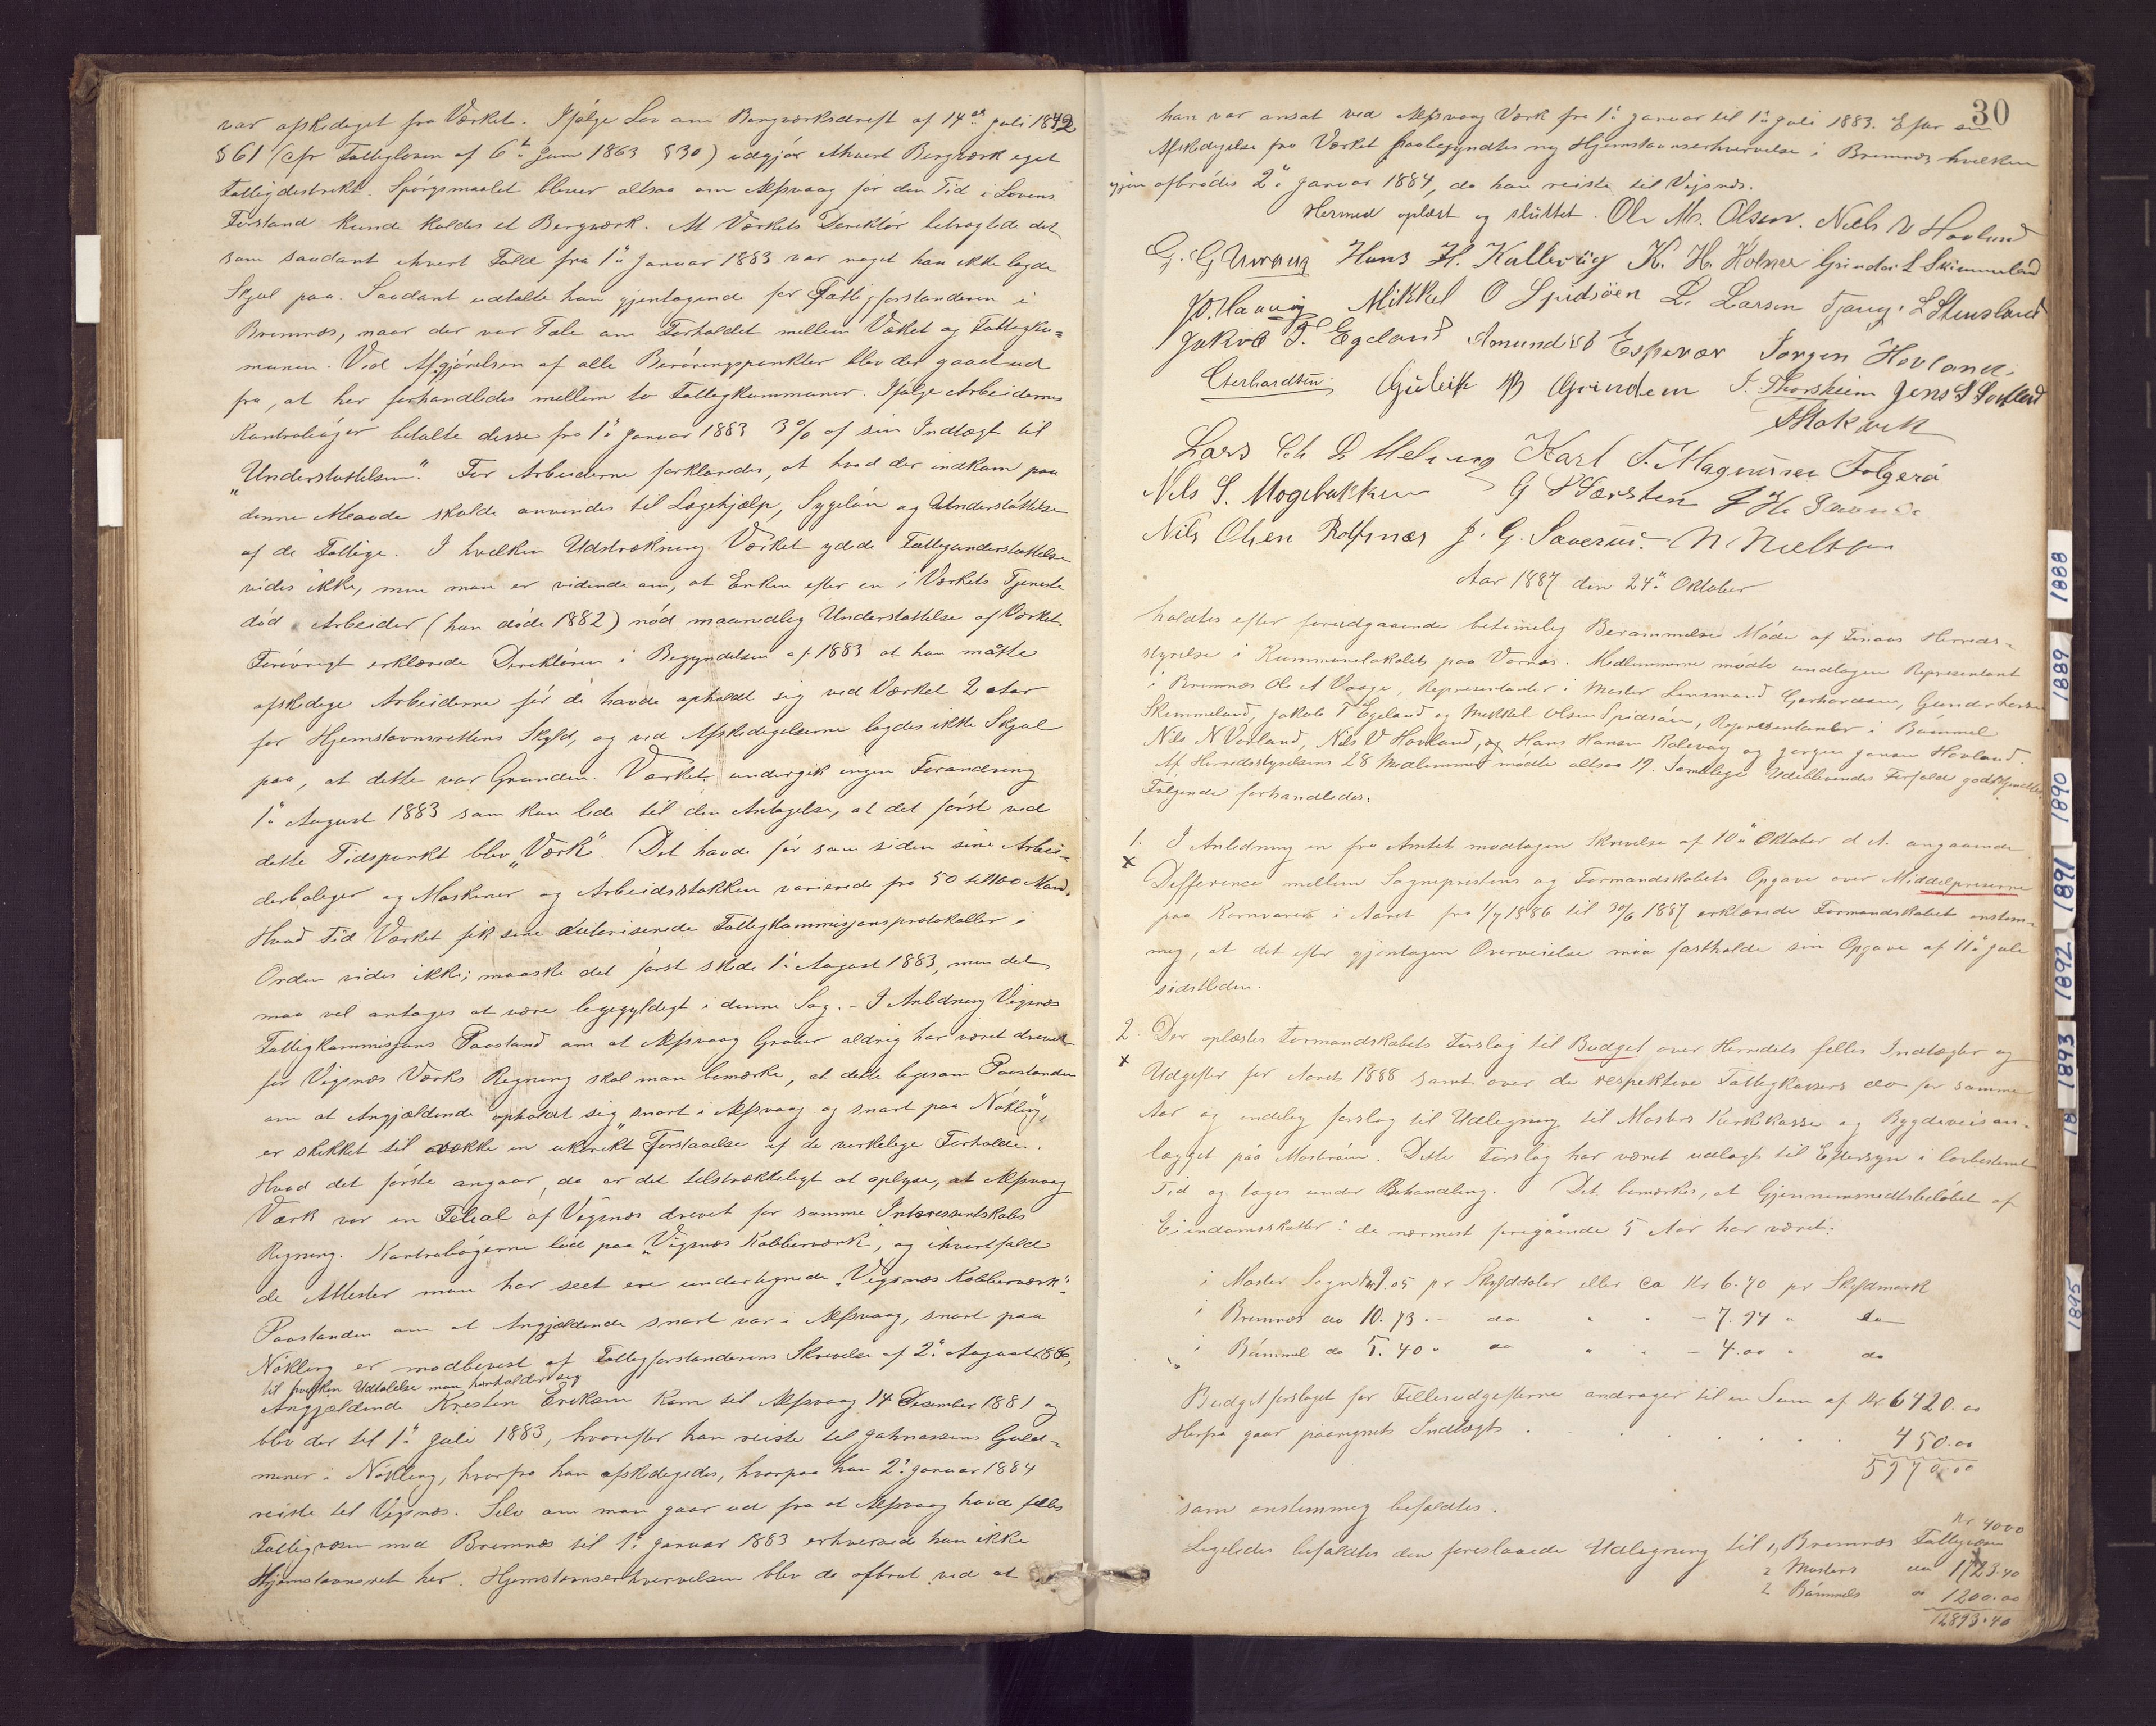 var afskediget fra Værket. Ifølge Lov om Bergværksdrift af 14de Juli 1842
§ 61 (cfr Fattigloven af 6te Juni 1863 § 30) udgjør ethvert Bergværk eget
Fattigdistrikt. Spørgsmaalet bliver altsaa om Alfsvaag før den Tid i Lovens
Forstand kunde kaldes et Bergværk. At Værkets Direktør betragtede det
som saadant ihvert Fald fra 1ste Januar 1883 var noget han ikke lagde
Skjul paa. Saadant udtalte han gjentagende for Fattigforstanderen i
Bremnæs, naar der var Tale om Forholdet mellem Værket og Fattigkom=
munen. Ved Afgjørelsen af alle Berøringspunkter blev der gaaet ud
fra, at her forhandledes mellem to Fattigkommuner. Ifølge Arbeidernes
Kontrabøger betalte disse fra 1ste Januar 1883 3% af sin Indtægt til
"Understøttelsen". For Arbeiderne forklaredes, at hvad der indkom paa
denne Maade skulde anvendes til Lægehjælp, Sygeløn og Understøttelse
af de Fattige. I hvilken Udstrækning Værket ydede Fattigunderstøttelse
vides ikke, men man er vidende om, at Enken efter en i Værkets Tjeneste
død Arbeider (han døde 1882) nød maanedlig Understøttelse af Værket.
Forøvrigt erklærede Direktøren i Begyndelsen af 1883 at han måtte
afskedige Arbeiderne før de havde opholdt sig ved Værket 2 Aar
for Hjemstavnsrettens Skyld, og ved Afskedigelserne lagdes ikke Skjul
paa, at dette var Grunden. Værket undergik ingen Forandring
1ste August 1883 som kan lede til den Antagelse, at det først ved
dette Tidspunkt blev "Værk". Det havde før som siden sine Arbei=
derboliger og Maskiner og Arbeidsstokken varierede fra 50 til 100 Mand.
Hvad Tid Værket fik sine autoriserede Fattigkommissjonsprotokoller i
Orden vides ikke; maaske det først skede 1ste August 1883, men det
maa vel antages at være ligegyldigt i denne Sag. – I Anledning Vigsnæs
Fattigkommissjons Paastand om at Alfsvaag Gruber aldrig har været drevet
for Vigsnæs Værks Regning skal man bemærke, at dette ligesom Paastanden
om at Angjældende opholdt sig "snart i Alfsvaag og snart paa Nøkling",
er skikket til vække en ukorrekt Forstaaelse af de virkelige Forholde.
Hvad det første angaar, da er det tilstrækkeligt at oplyse, at Alfsvaag
Værk var en Filial af Vigsnæs drevet for samme Interessentskabs
Regning. Kontrabøgerne lød paa "Vigsnæs Kobberværk", og ihvertfald
de Attester man har seet ere undertegnede "Vigsnæs Kobberværk".
Paastanden om at Angjældende snart var i Alfsvaag, snart paa
Nøkling er modbevist af Fattigforstanderens Skrivelse af 2den August 1886,
til hvilken Udtalelse man henholder sig
Angjældende Kristen Eriksen kom til Alfsvaag 14 December 1881 og
blev der til 1ste Juli 1883, hvorefter han reiste til Guld=
miner i Nøkling, hvorfra han afskedigedes, hvorpaa han 2den Januar 1884
reiste til Vigsnæs. Selv om man gaar ud fra at Alfsvaag havde fælles
Fattigvæsen med Bremnæs til 1ste Januar 1883 erhvervede han ikke
Hjemstavnsret her. Hjemstavnserhvervelsen blev da afbrut ved at
30
han var ansat ved Alfsvaag Værk fra 1ste Januar til 1ste Juli 1883. Efter sin
Afskedigelse fra Værket paabegyndtes ny Hjemstavnserhvervelse i Bremnæs hvilken
igjen afbrødes 2den Januar 1884, da han reiste til Vigsnæs.
Hermed oplæst og sluttet. Ole M. Olsen. Niels V Hovland
Hans H. Kallevåg K. H. Holme Gunder L Skimmeland
Mikkel O Spidsöen L. Larsen Tjang. L Stensland
Jakob T. Egeland Amund Espevær Jørgen Hovland.
Gerhardsen. Guleik Grindem J. Thorsheim Jens
Stokvik
Lars Karl T. Magnussen Folgerø
Nils S. Mogebakken
Nils Olsen Rolfsnæs
Aar 1887 den 24de Oktober
holdtes efter forudgaaende betimelig Berammelse Møde af Finaas Herreds=
styrelse i Kommunelokalet paa Vornæs. Medlemmerne mødte undtagen Repræsentant
i Bremnæs Ole A Vaage, Repræsentanter i Moster Lensmand Gerhardsen, Gunder Larsen
Skimmeland, Jakob T Egeland og Mikkel Olsen Spidsøen, Repræsentanter i Bømmel
Nils N Vorland, Nils V Hovland, og Hans Hansen Kalevaag og Jørgen Jonsen Hovland.
Af Herredsstyrelsens 28 Medlemmer mødte altsaa 19. Samtlige Udeblivendes Forfald godkjendtes.
Følgende forhandledes:
1. I Anledning en fra Amtet modtagen Skrivelse af 10de Oktober d. A. angaaende
x Defference mellem Sogneprestens og Formandskabets Opgave over Middelpriserne
paa Kornvarer i Aaret fra 1/7 1886 til 30/6 1887 erklærede Formandskabet enstem=
mig, at det efter gjentagen Overveielse maa fastholde sin Opgave af 11te Juli
sidstleden.
2. Der oplæstes Formandskabets Forslag til Budget over Herredets fælles Indtægter og
x Udgifter for Aaret 1888 samt over de respektive Fattigkassers do for samme
Aar og endelig forslag til Udligning til Mosters Kirkekasse og Bygdeveisan=
lægget paa Mosterøen. Dette Forslag har været udlagt til Eftersyn i lovbestemt
Tid og toges under Behandling. Det bemærkes, at Gjennemsnitsbeløbet af
Eiendomsskatter i de nærmest foregående 5 Aar har været:
i Moster Sogn Kr 9.05 pr Skylddaler eller ca Kr 6.70 pr Skyldmark
i Bremnæs do 10.73 .– do " " – 7.94 " do
i Bømmel do 5.40 " do " " – 4.00 " do
Budgetforslaget for Fællesudgifterne andrager til en Sum af Kr 6420.00
Herfra gaar paaregnet Indtægt . . . . . . . 450.00
5970.00
som enstemmig befaldtes.
Ligeledes befaldtes den foreslaaede Udligning til 1, Bremnæs Fattigvæsen Kr 4000
2 Mosters do 1723.40
2 Bømmels do 1200.00
12893.40
1888
1889
1890
1891
1892
1893
18
1895